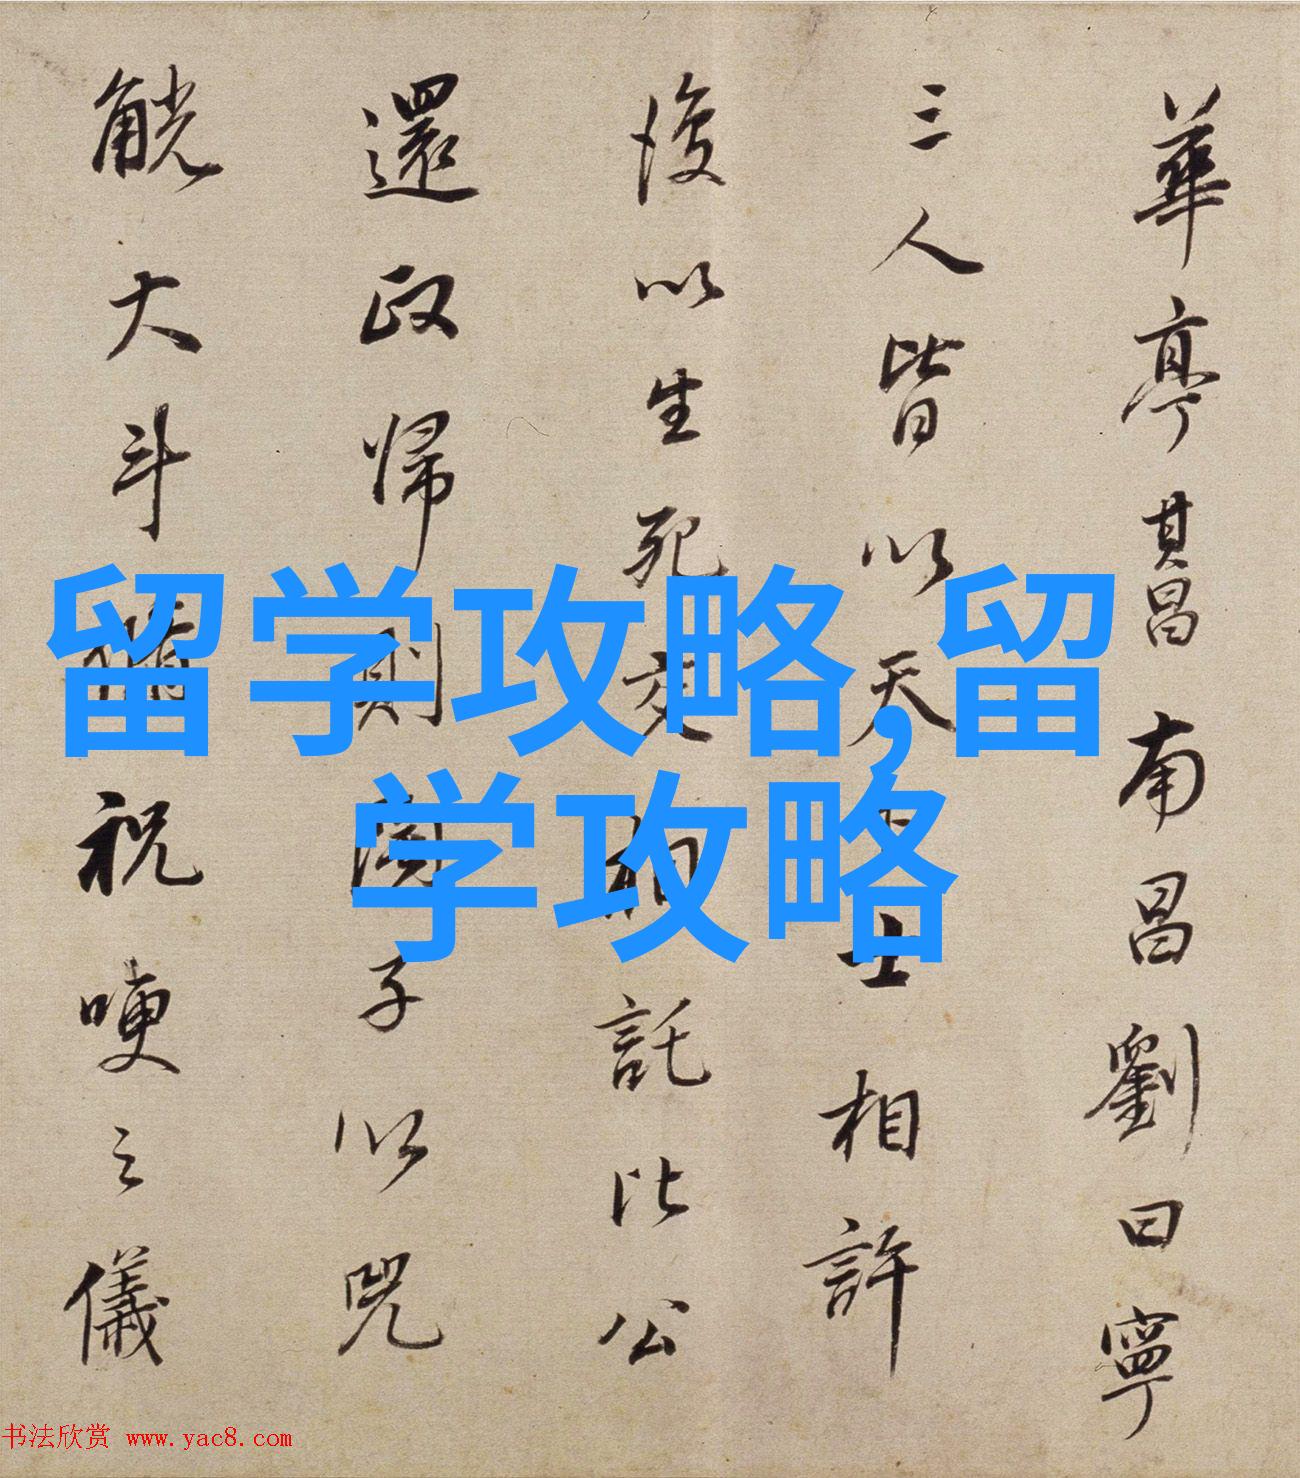 華亭其昌南昌劉曰寧
三人皆以天下士相許
後以生死交相託比公
還政歸則閱子以兕
觥大斗備祝哽之儀
留学攻略,留
学攻略
书法欣赏 www.yac8.com